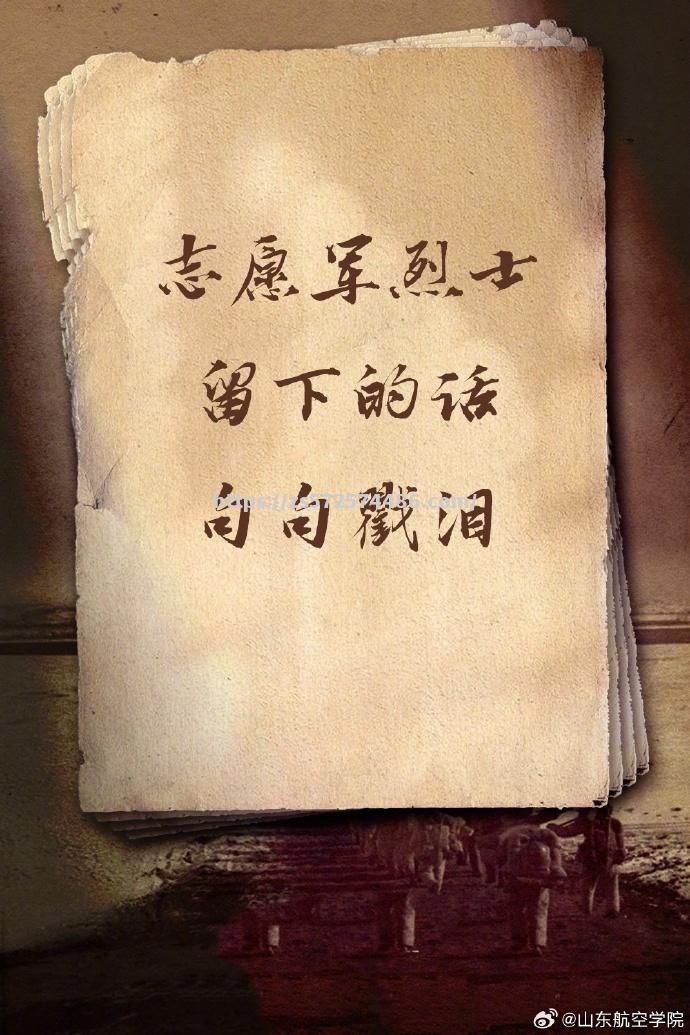 志愿军烈士
留下的话
句句戳泪
https://zs572574486.com/
@山东航空学院